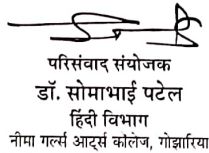 परिसंवाद संयोजक
डॉ. सोमाभाई पटेल
हिंदी विभाग
नीमा गर्ल्स आर्ट्स कॉलेज, गोझारिया